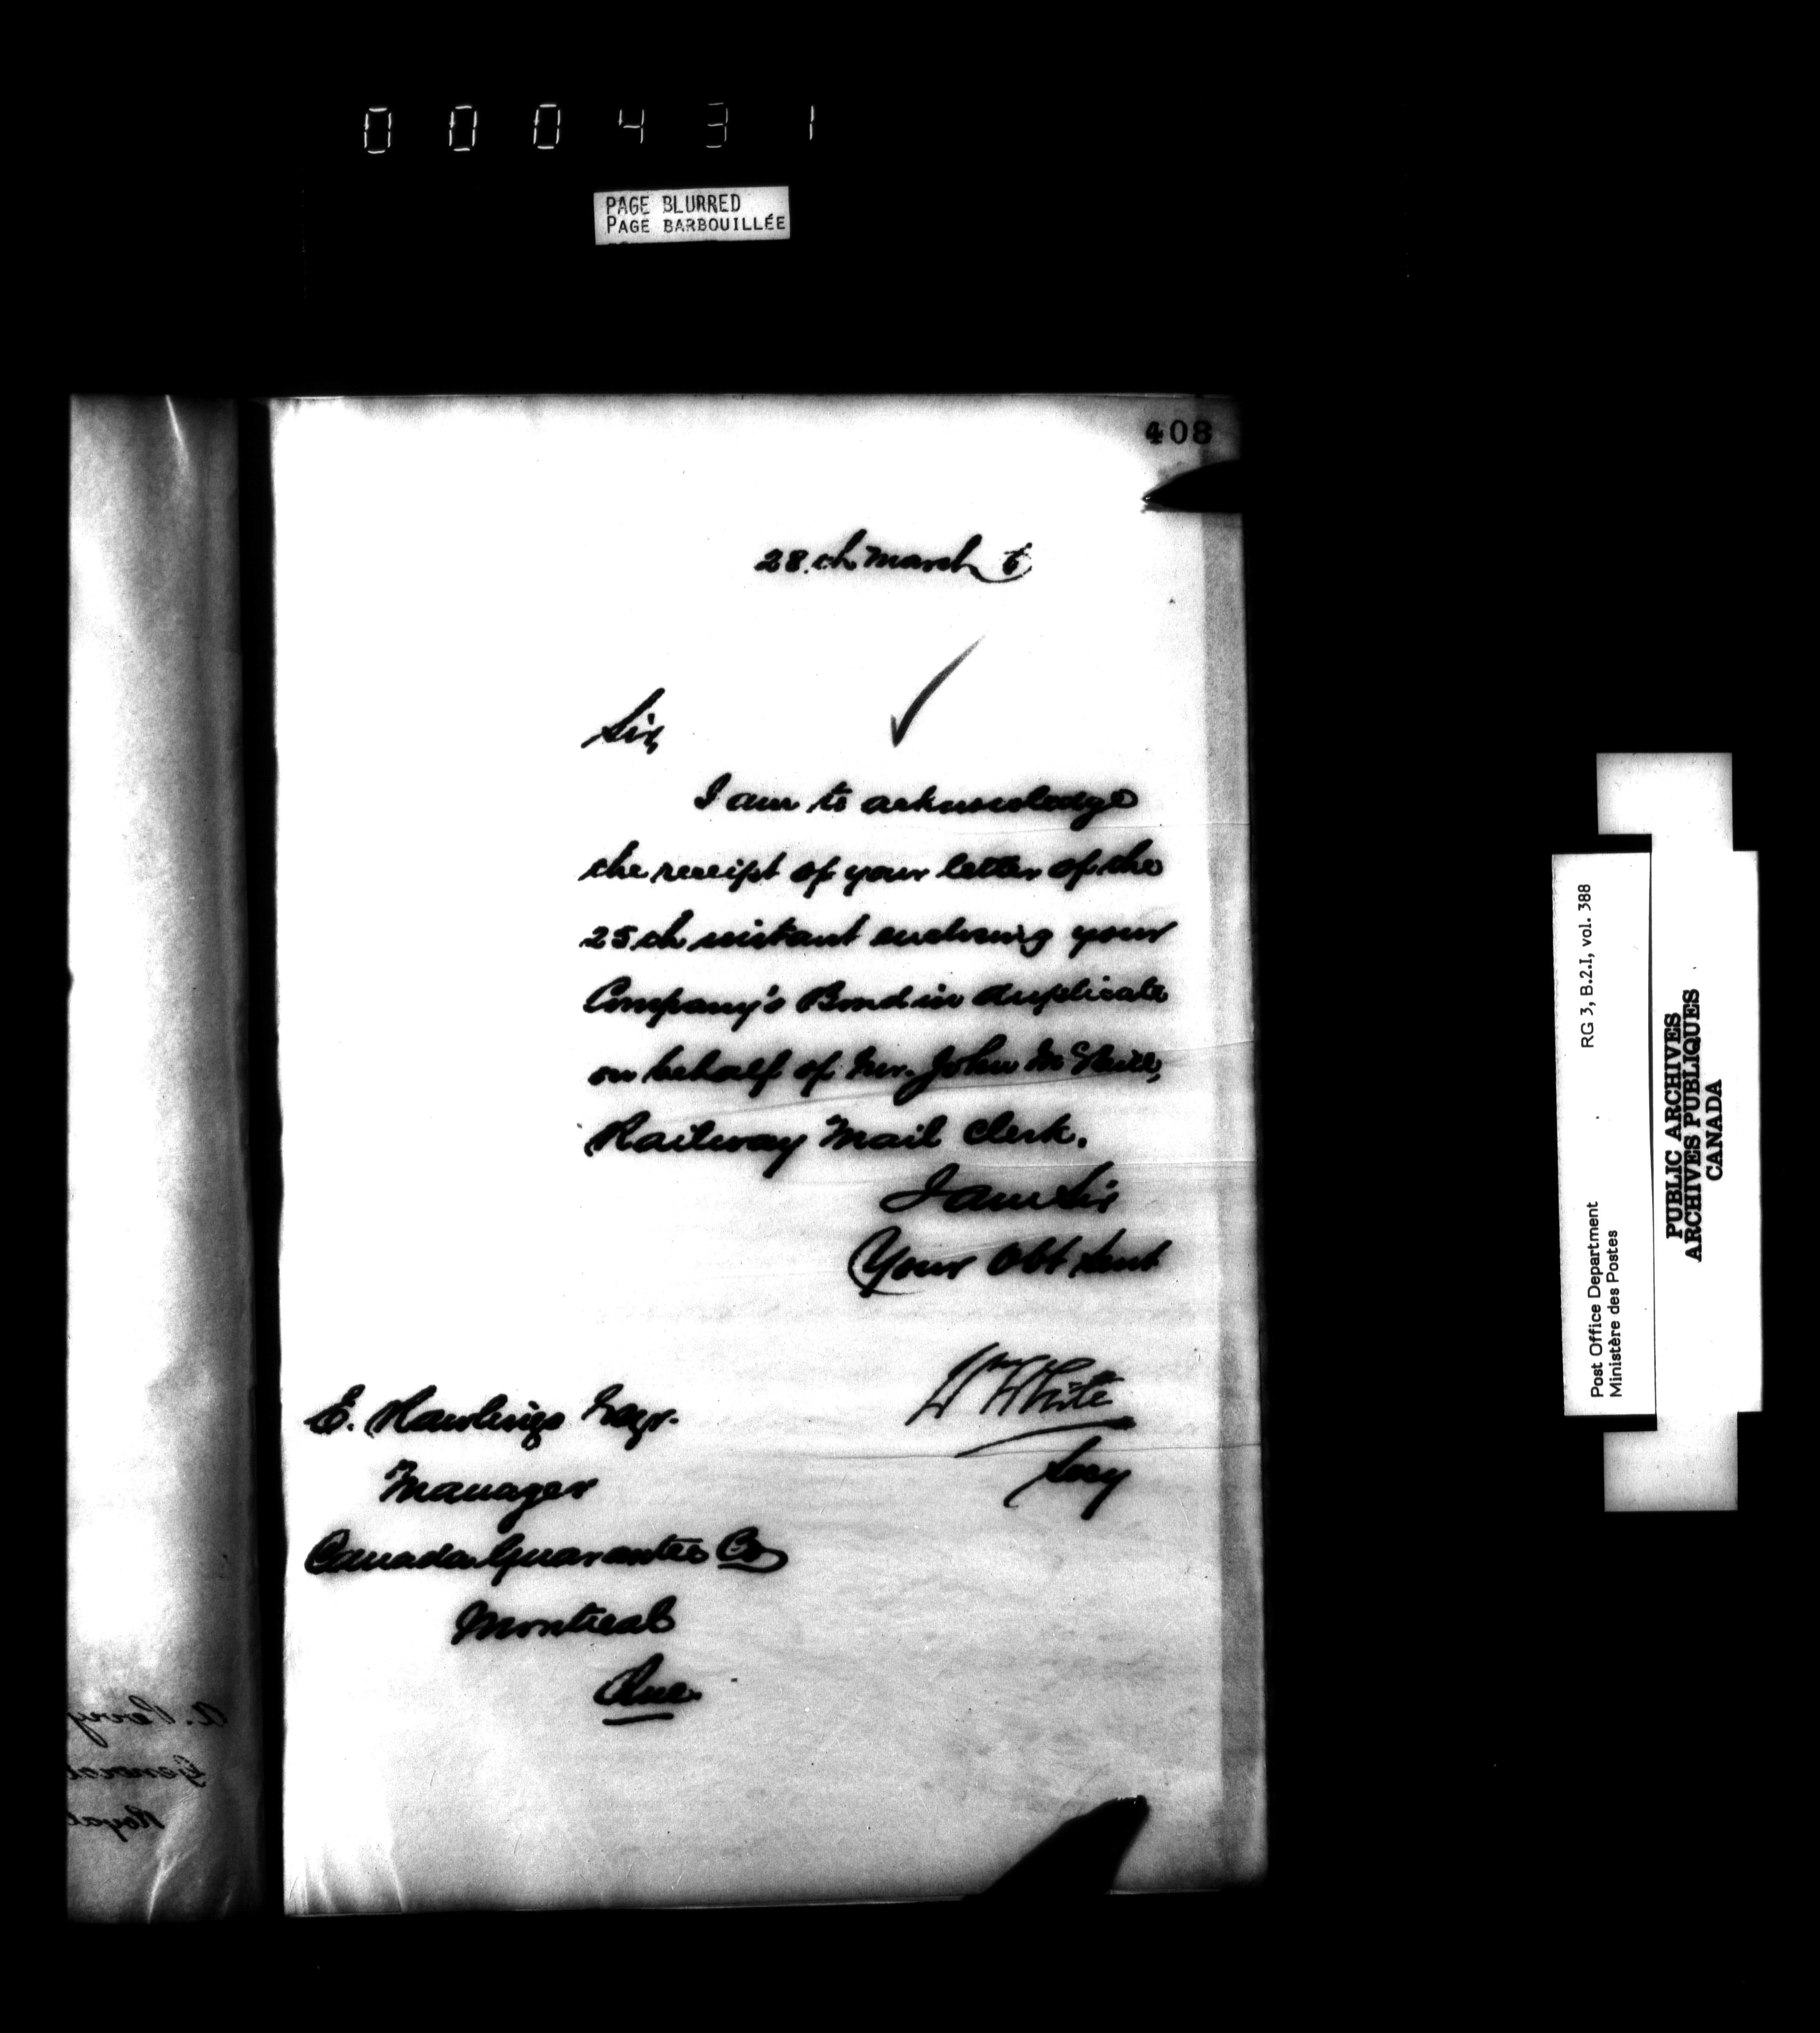 000431
PAGE BLURRED
PAGE BARBOUILLÉE
408
28th March 6
Sir,
I am to acknowledge
the receipt of your letter of the
25th instant enclosing your
Company's Bond in duplicate
on behalf of Mr. John
Railway Mail Clerk.
I am Sir
Your Obt Servt
Wm White
Secy
E. Rawlings Esqr.
Manager
Canada Guarantee Co
Montreal
Que.
A. Perry
General
Royal
RG 3, B.2.I, vol. 388
Post Office Department
Ministère des Postes
PUBLIC ARCHIVES
ARCHIVES PUBLIQUES
CANADA